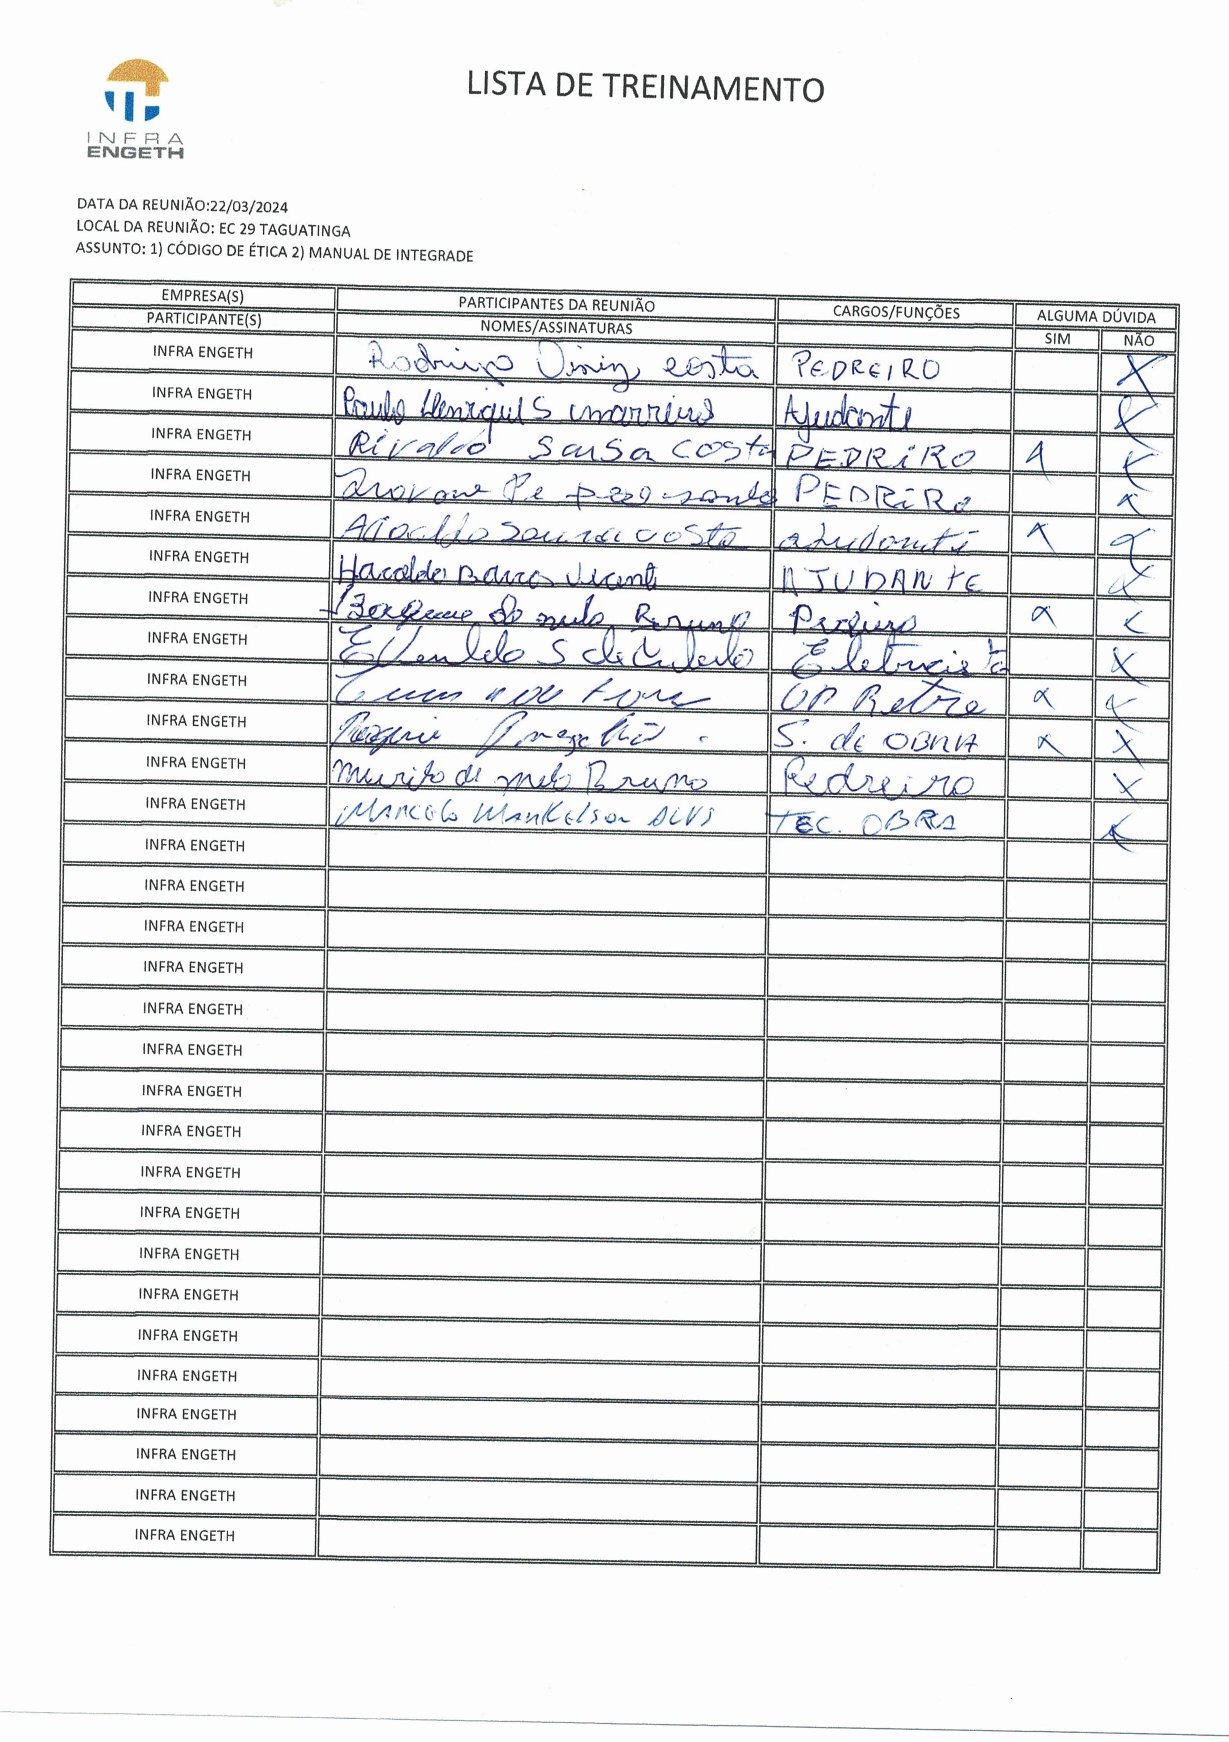 INFRA
ENGETH
LISTA DE TREINAMENTO
DATA DA REUNIÃO:22/03/2024
LOCAL DA REUNIÃO: EC 29 TAGUATINGA
ASSUNTO: 1) CÓDIGO DE ÉTICA 2) MANUAL DE INTEGRADE
EMPRESA(S) PARTICIPANTES DA REUNIÃO CARGOS/FUNÇÕES ALGUMA DÚVIDA
PARTICIPANTE(S) NOMES/ASSINATURAS SIM NÃO
INFRA ENGETH Rodrigo Diniz costa PEDREIRO X
INFRA ENGETH Paulo Henrique S Ajudante X
INFRA ENGETH Rivaldo Sousa COSTA PEDRiRO X
INFRA ENGETH PEDRiRo X
INFRA ENGETH costa
INFRA ENGETH Haroldo Barros AJUDANTE X
INFRA ENGETH
INFRA ENGETH Eletricista X
INFRA ENGETH OP Retro
INFRA ENGETH S. de OBRA X X
INFRA ENGETH murilo de melo Bruno Pedreiro X
INFRA ENGETH MARCELO TEC. OBRA X
INFRA ENGETH
INFRA ENGETH
INFRA ENGETH
INFRA ENGETH
INFRA ENGETH
INFRA ENGETH
INFRA ENGETH
INFRA ENGETH
INFRA ENGETH
INFRA ENGETH
INFRA ENGETH
INFRA ENGETH
INFRA ENGETH
INFRA ENGETH
INFRA ENGETH
INFRA ENGETH
INFRA ENGETH
INFRA ENGETH